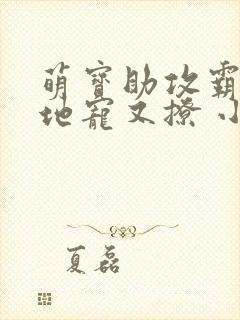 萌寶助攻霸
地寵又撩小
夏磊